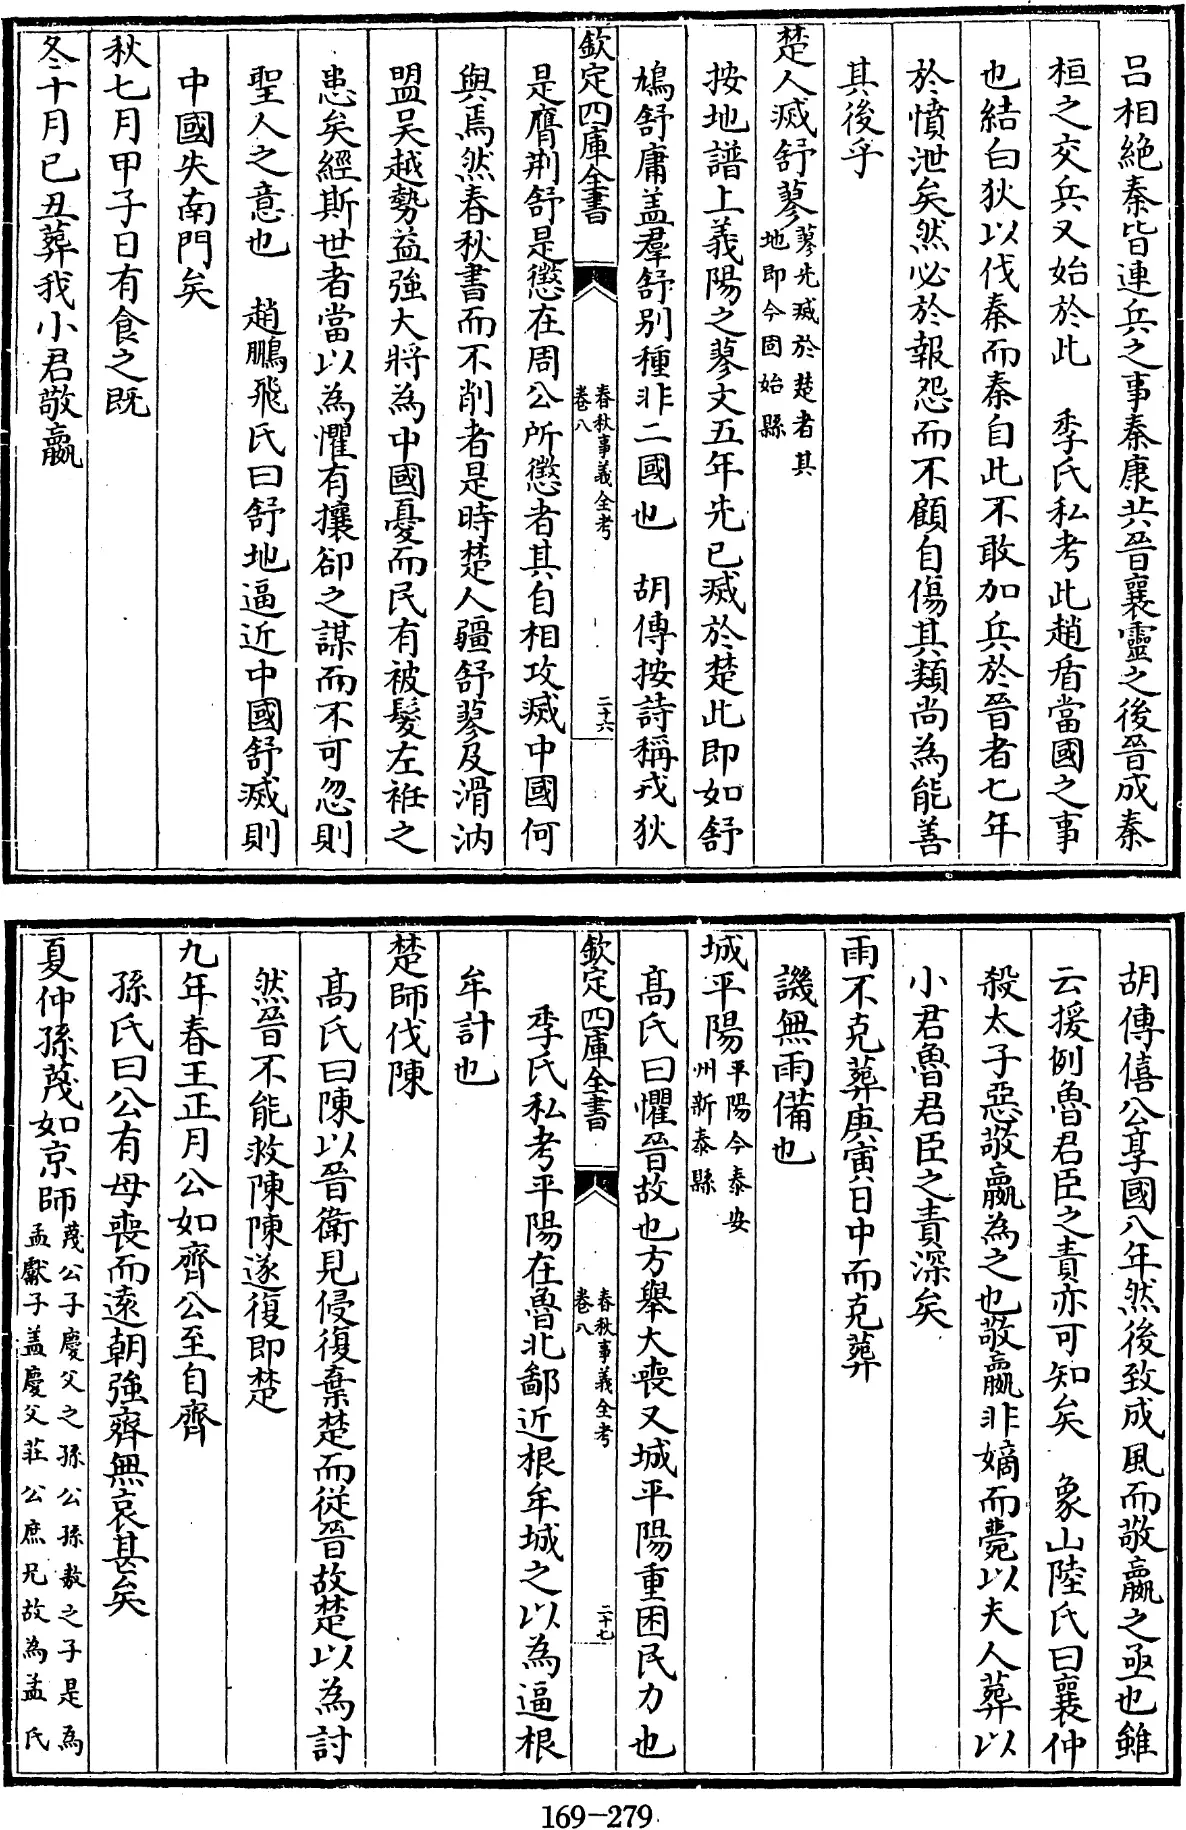 呂相絶秦皆連兵之事秦康共晉襄靈之後晉成秦
桓之交兵又始於此　季氏私考此趙盾當國之事
也結白狄以伐秦而秦自此不敢加兵於晉者七年
於憤泄矣然必於報怨而不顧自傷其類尚為能善
其後乎
楚人滅舒蓼蓼先滅於楚者其
地即今固始縣
按地譜上義陽之蓼文五年先已滅於楚此即如舒
鳩舒庸盖羣舒别種非二國也　胡傳按詩稱戎狄
欽定四庫全書
春秋事義全考
卷八
二十六
是膺荆舒是懲在周公所懲者其自相攻滅中國何
與焉然春秋書而不削者是時楚人疆舒蓼及滑汭
盟吴越勢益強大將為中國憂而民有被髮左衽之
患矣經斯世者當以為懼有攘卻之謀而不可忽則
聖人之意也　趙鵬飛氏曰舒地逼近中國舒滅則
中國失南門矣
秋七月甲子日有食之既
冬十月己丑葬我小君敬嬴
胡傳僖公享國八年然後致成風而敬嬴之亟也雖
云援例魯君臣之責亦可知矣　象山陸氏曰襄仲
殺太子惡敬嬴為之也敬嬴非嫡而薨以夫人葬以
小君魯君臣之責深矣
雨不克葬庚寅日中而克葬
譏無雨備也
城平陽平陽今泰安
州新泰縣
髙氏曰懼晉故也方舉大喪又城平陽重困民力也
欽定四庫全書
春秋事義全考
卷八
二十七
季氏私考平陽在魯北鄙近根牟城之以為逼根
牟計也
楚師伐陳
髙氏曰陳以晉衛見侵復棄楚而從晉故楚以為討
然晉不能救陳陳遂復即楚
九年春王正月公如齊公至自齊
孫氏曰公有母喪而逺朝強齊無哀甚矣
夏仲孫蔑如京師蔑公子慶父之孫公孫敖之子是為
孟獻子盖慶父莊公庶兄故為孟氏
169-279